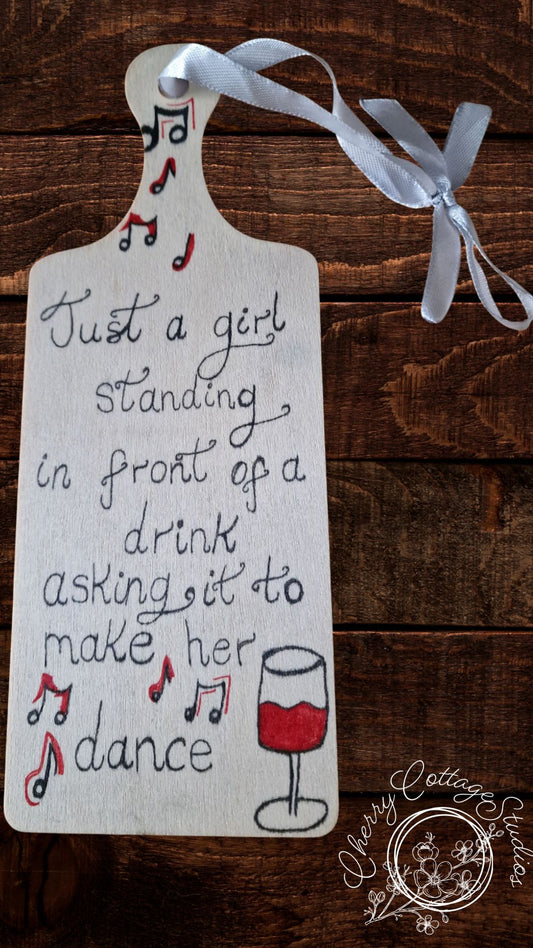 Just a girl
standing
in front of a
drink
asking it to
make her
dance
Cherry Cottage Studios